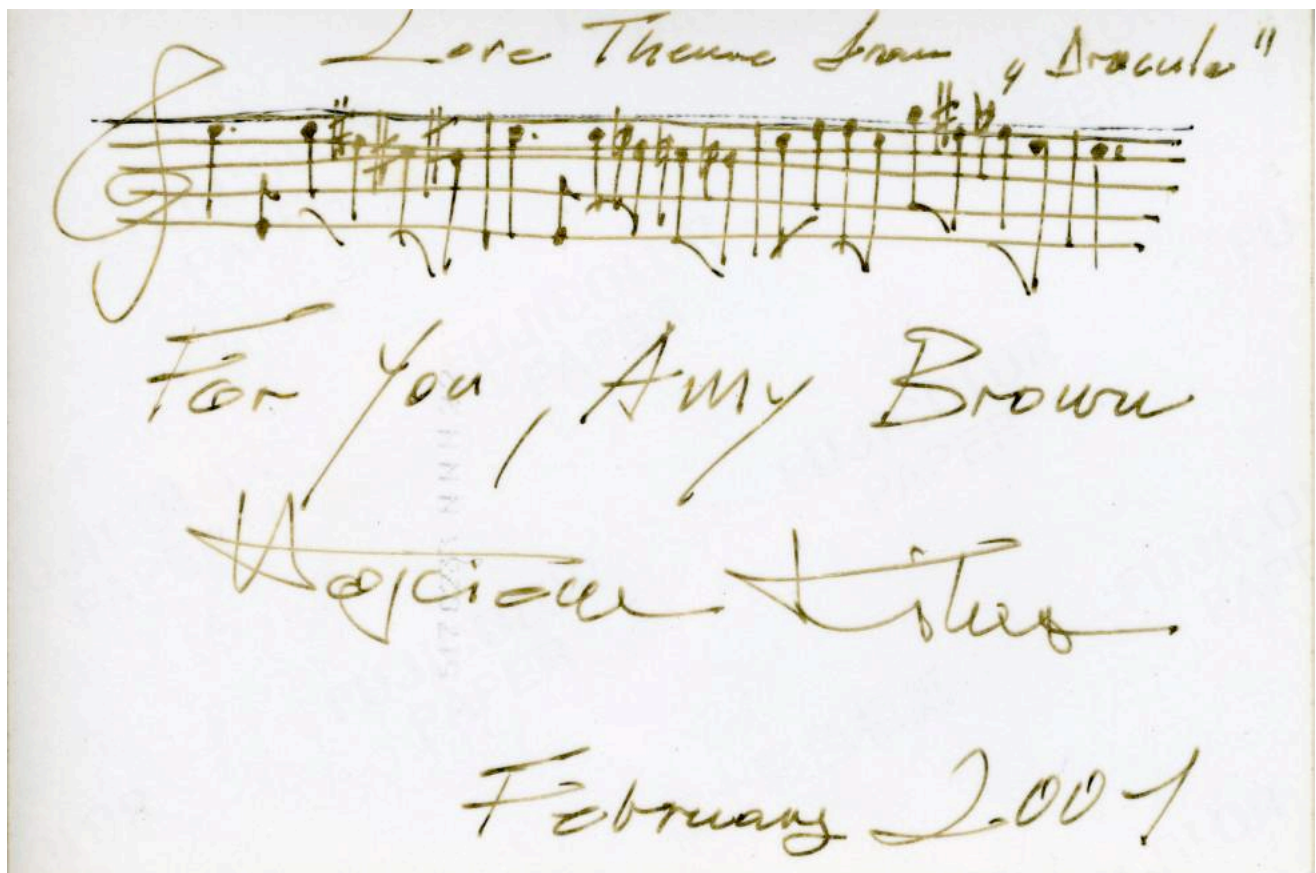 Love Theme from „Dracula"
For You, Amy Brown
Wojciech Kilar
February 2001